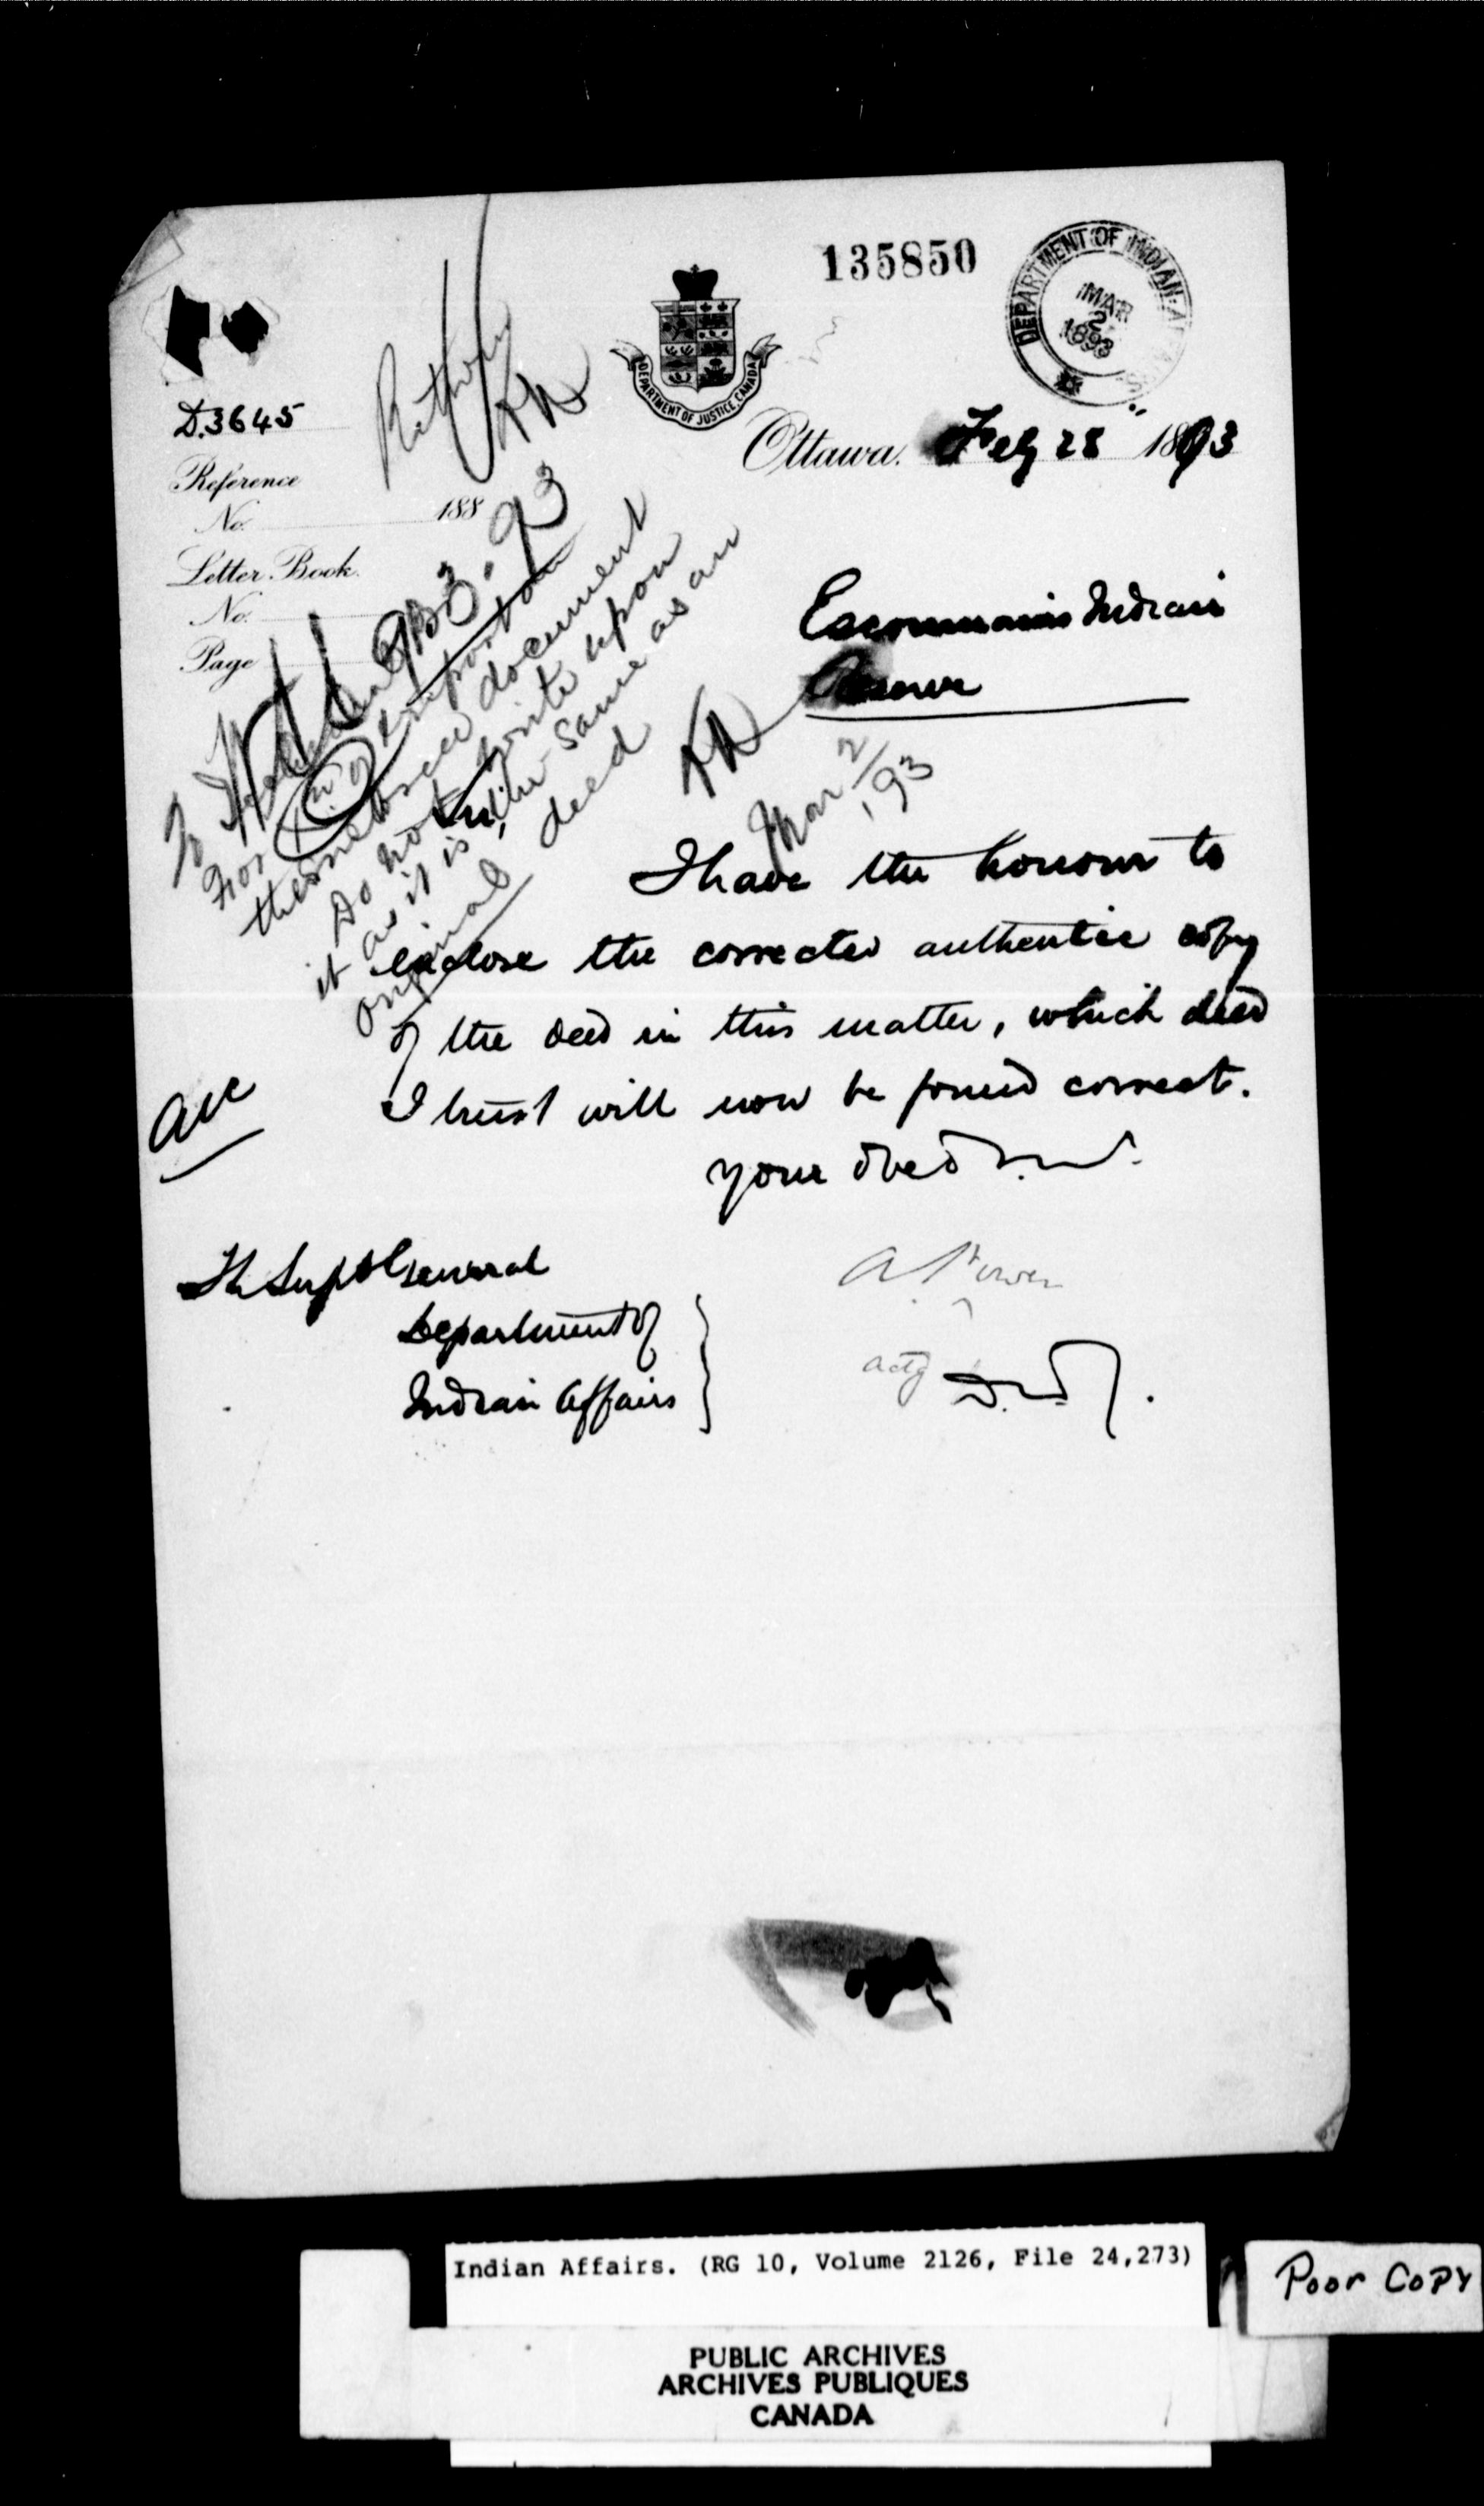 135850
DEPARTMENT OF INDIAN AFFAIRS
MAR
2
1893
DEPARTMENT OF JUSTICE, CANADA
D.3645
Reference
No. 188
Letter Book.
No.
Page
Ottawa. Feby 28 1893
Escoumains Indian
Reserve
For
important
document
Do not write upon
it as it is the same as an
original deed
Mar 2/93
I have the honour to
enclose the corrected authentic copy
of the deed in this matter, which deed
I trust will now be found correct.
Your obed
The Supt General
Department of
Indian Affairs
A Power
actg D.M.J.
Indian Affairs. (RG 10, Volume 2126, File 24,273)
Poor Copy
PUBLIC ARCHIVES
ARCHIVES PUBLIQUES
CANADA